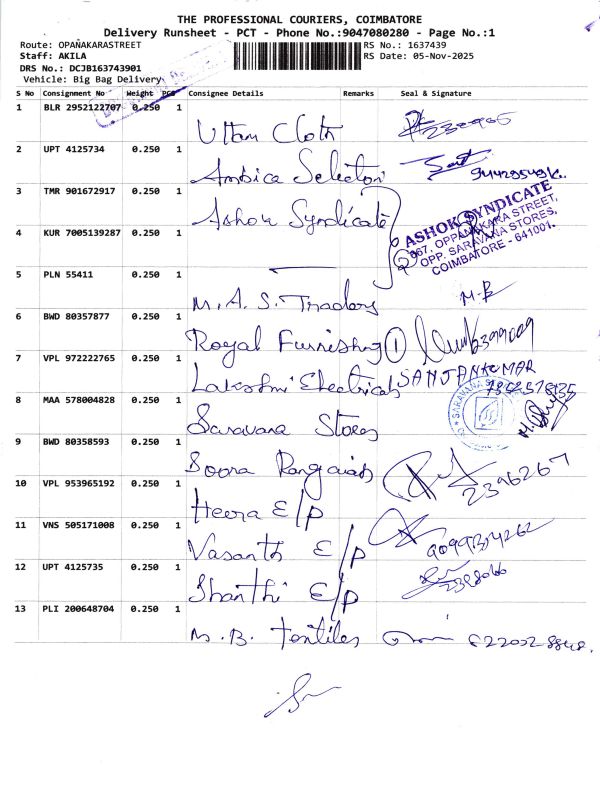 THE PROFESSIONAL COURIERS, COIMBATORE
Delivery Runsheet - PCT - Phone No.:9047080280 - Page No.:1
Route: OPANAKARASTREET
Staff: AKILA
DRS No.: DCJB163743901
Vehicle: Big Bag Delivery
RS No.: 1637439
RS Date: 05-Nov-2025
S No Consignment No Weight PCS Consignee Details Remarks Seal & Signature
1 BLR 2952122707 0.250 1
Uttam Cloth
2 UPT 4125734 0.250 1
Ambica Selection
3 TMR 901672917 0.250 1
Ashok Syndicate
ASHOK SYNDICATE
867, OPPANAKARA STREET,
OPP. SARAVANA STORES,
COIMBATORE - 641001.
4 KUR 7005139287 0.250 1
5 PLN 55411 0.250 1
M. A. S. Traders
6 BWD 80357877 0.250 1
Royal Furnishing 1
7 VPL 972222765 0.250 1
Lakshmi Electricals SANJAYKUMAR
8 MAA 578004828 0.250 1
Saravana Stores
9 BWD 80358593 0.250 1
Boora Rangaiah 2396267
10 VPL 953965192 0.250 1
Heera E/p
11 VNS 505171008 0.250 1
Vasanth E/p
12 UPT 4125735 0.250 1
Shanthi E/p
13 PLI 200648704 0.250 1
M. B. Textiles